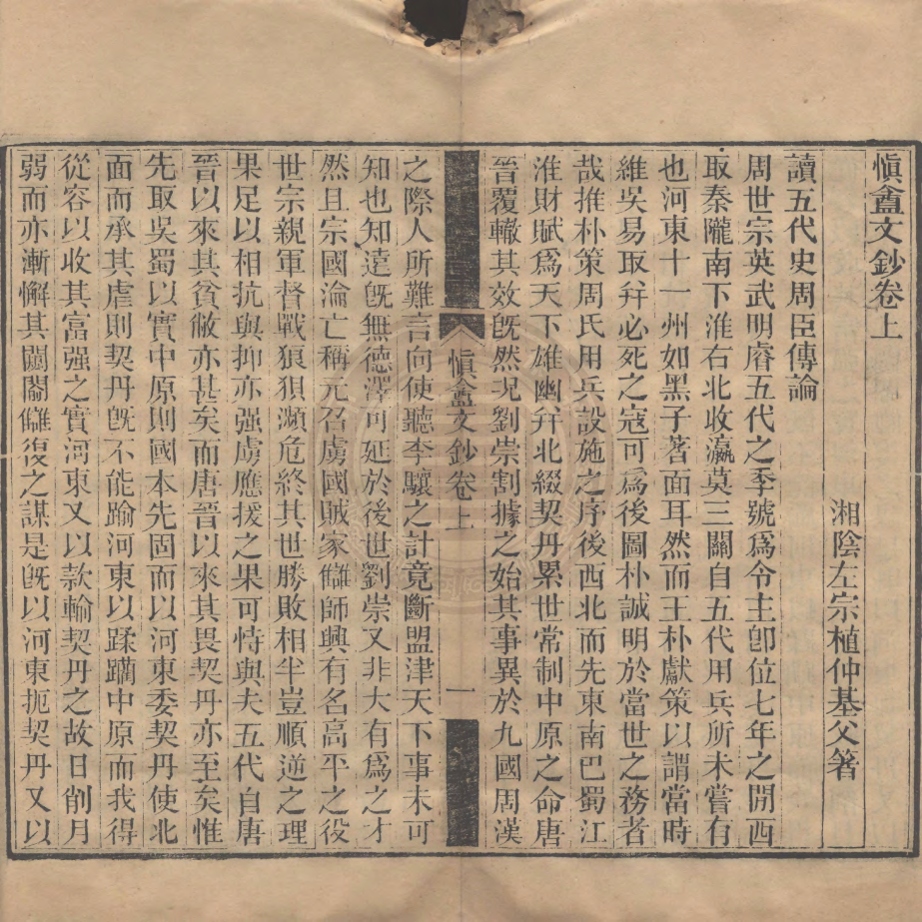 愼盦文鈔卷上
湘陰左宗植仲基父箸
讀五代史周臣傳論
周世宗英武明睿五代之季號爲令主卽位七年之閒西
取秦隴南下淮右北收瀛莫三關自五代用兵所未嘗有
也河東十一州如黑子著面耳然而王朴獻策以謂當時
維吳易取幷必死之寇可爲後圖朴誠明於當世之務者
哉推朴策周氏用兵設施之序後西北而先東南巴蜀江
淮財賦爲天下雄幽幷北綴契丹累世常制中原之命唐
晉覆轍其效旣然況劉崇割據之始其事異於九國周漢
愼盦文鈔卷上
一
之際人所難言向使聽李驤之計竟斷盟津天下事未可
知也知遠旣無德澤可延於後世劉崇又非大有爲之才
然且宗國淪亡稱元召虜國賊家讎師興有名高平之役
世宗親軍督戰狼狽瀕危終其世勝敗相半豈順逆之理
果足以相抗與抑亦强虜應援之果可恃與夫五代自唐
晉以來其貧敝亦甚矣而唐晉以來其畏契丹亦至矣惟
先取吳蜀以實中原則國本先固而以河東委契丹使北
面而承其虐則契丹旣不能踰河東以蹂躪中原而我得
從容以收其富强之實河東又以款輸契丹之故日削月
弱而亦漸懈其鬬鬩讎復之謀是旣以河東扼契丹又以